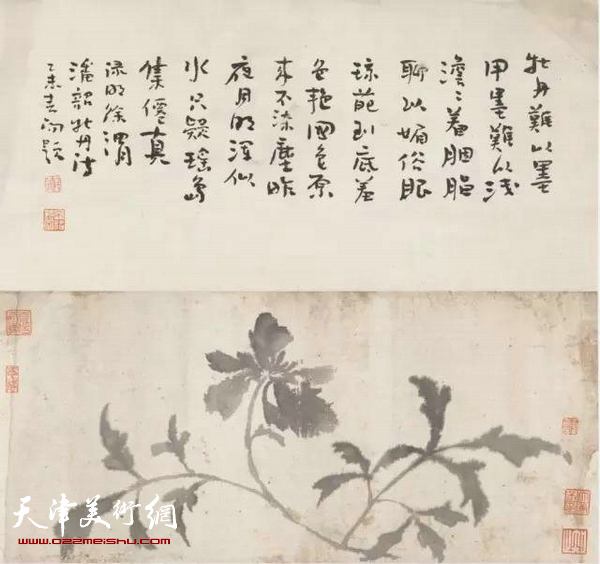 牡丹難以墨
甲墨難以淺
澹〻着胭脂
聊以媚俗眼
瓊葩到底羞
色艷國色原
来不染塵昨
夜月明渾似
水只疑瑤島
集僊真
录明徐渭
潘韶牡丹诗
乙未春题
天津美術網
www.022meishu.com